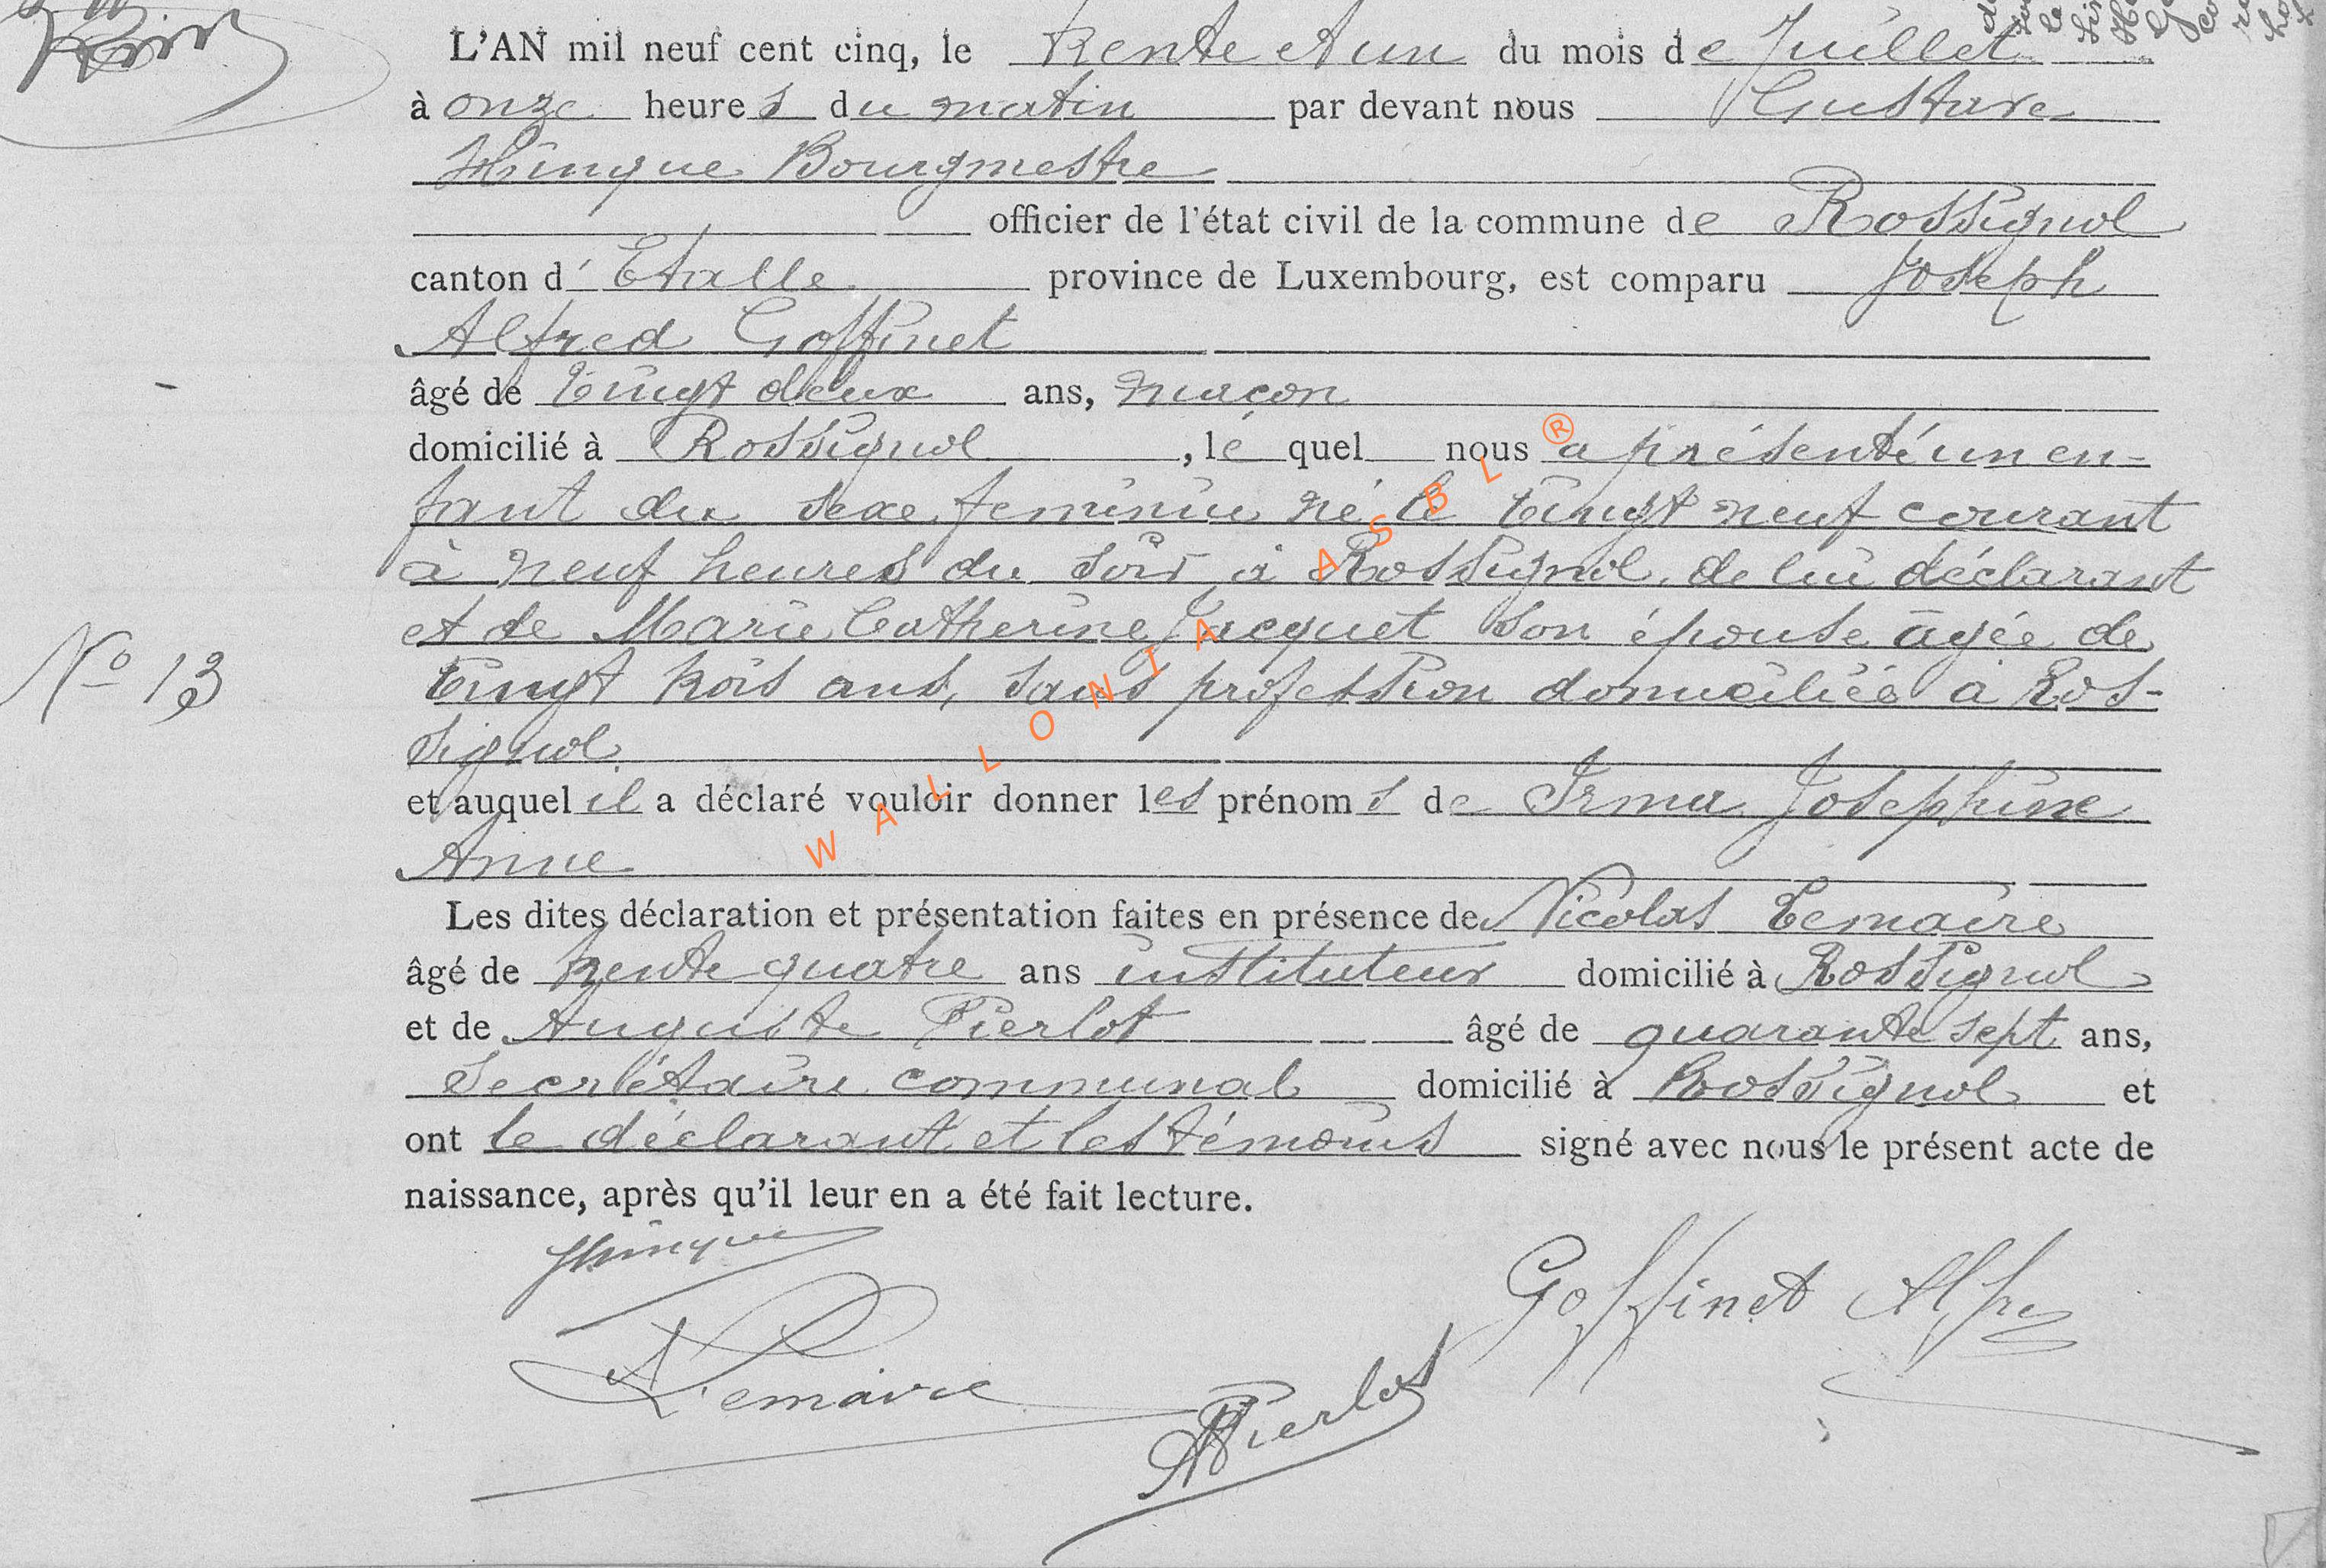 L'AN mil neuf cent cinq, le trente et un du mois de Juillet
à onze heures du matin par devant nous Gustave
Hurique Bourgmestre
officier de l'état civil de la commune de Rossignol
canton d'Etalle province de Luxembourg, est comparu Joseph
Alfred Goffinet
âgé de vingt deux ans, maçon
domicilié à Rossignol, le quel nous a présenté un en-
fant du sexe feminin né le vingt neuf courant
à neuf heures du soir à Rossignol, de lui déclarant
et de Marie Catherine Jacquet son épouse âgée de
vingt trois ans, sans profession domiciliée à Ros-
signol.
N° 13
et auquel il a déclaré vouloir donner les prénoms de Irma Joséphine
Anne
Les dites déclaration et présentation faites en présence de Nicolas Lemaire
âgé de trente quatre ans instituteur domicilié à Rossignol
et de Auguste Pierlot âgé de quarante sept ans,
secrétaire communal domicilié à Rossignol et
ont le déclarant et les témoins signé avec nous le présent acte de
naissance, après qu'il leur en a été fait lecture.
Goffinet Alfred
Lemaire
A Pierlot
WALLONIA ASBL ®